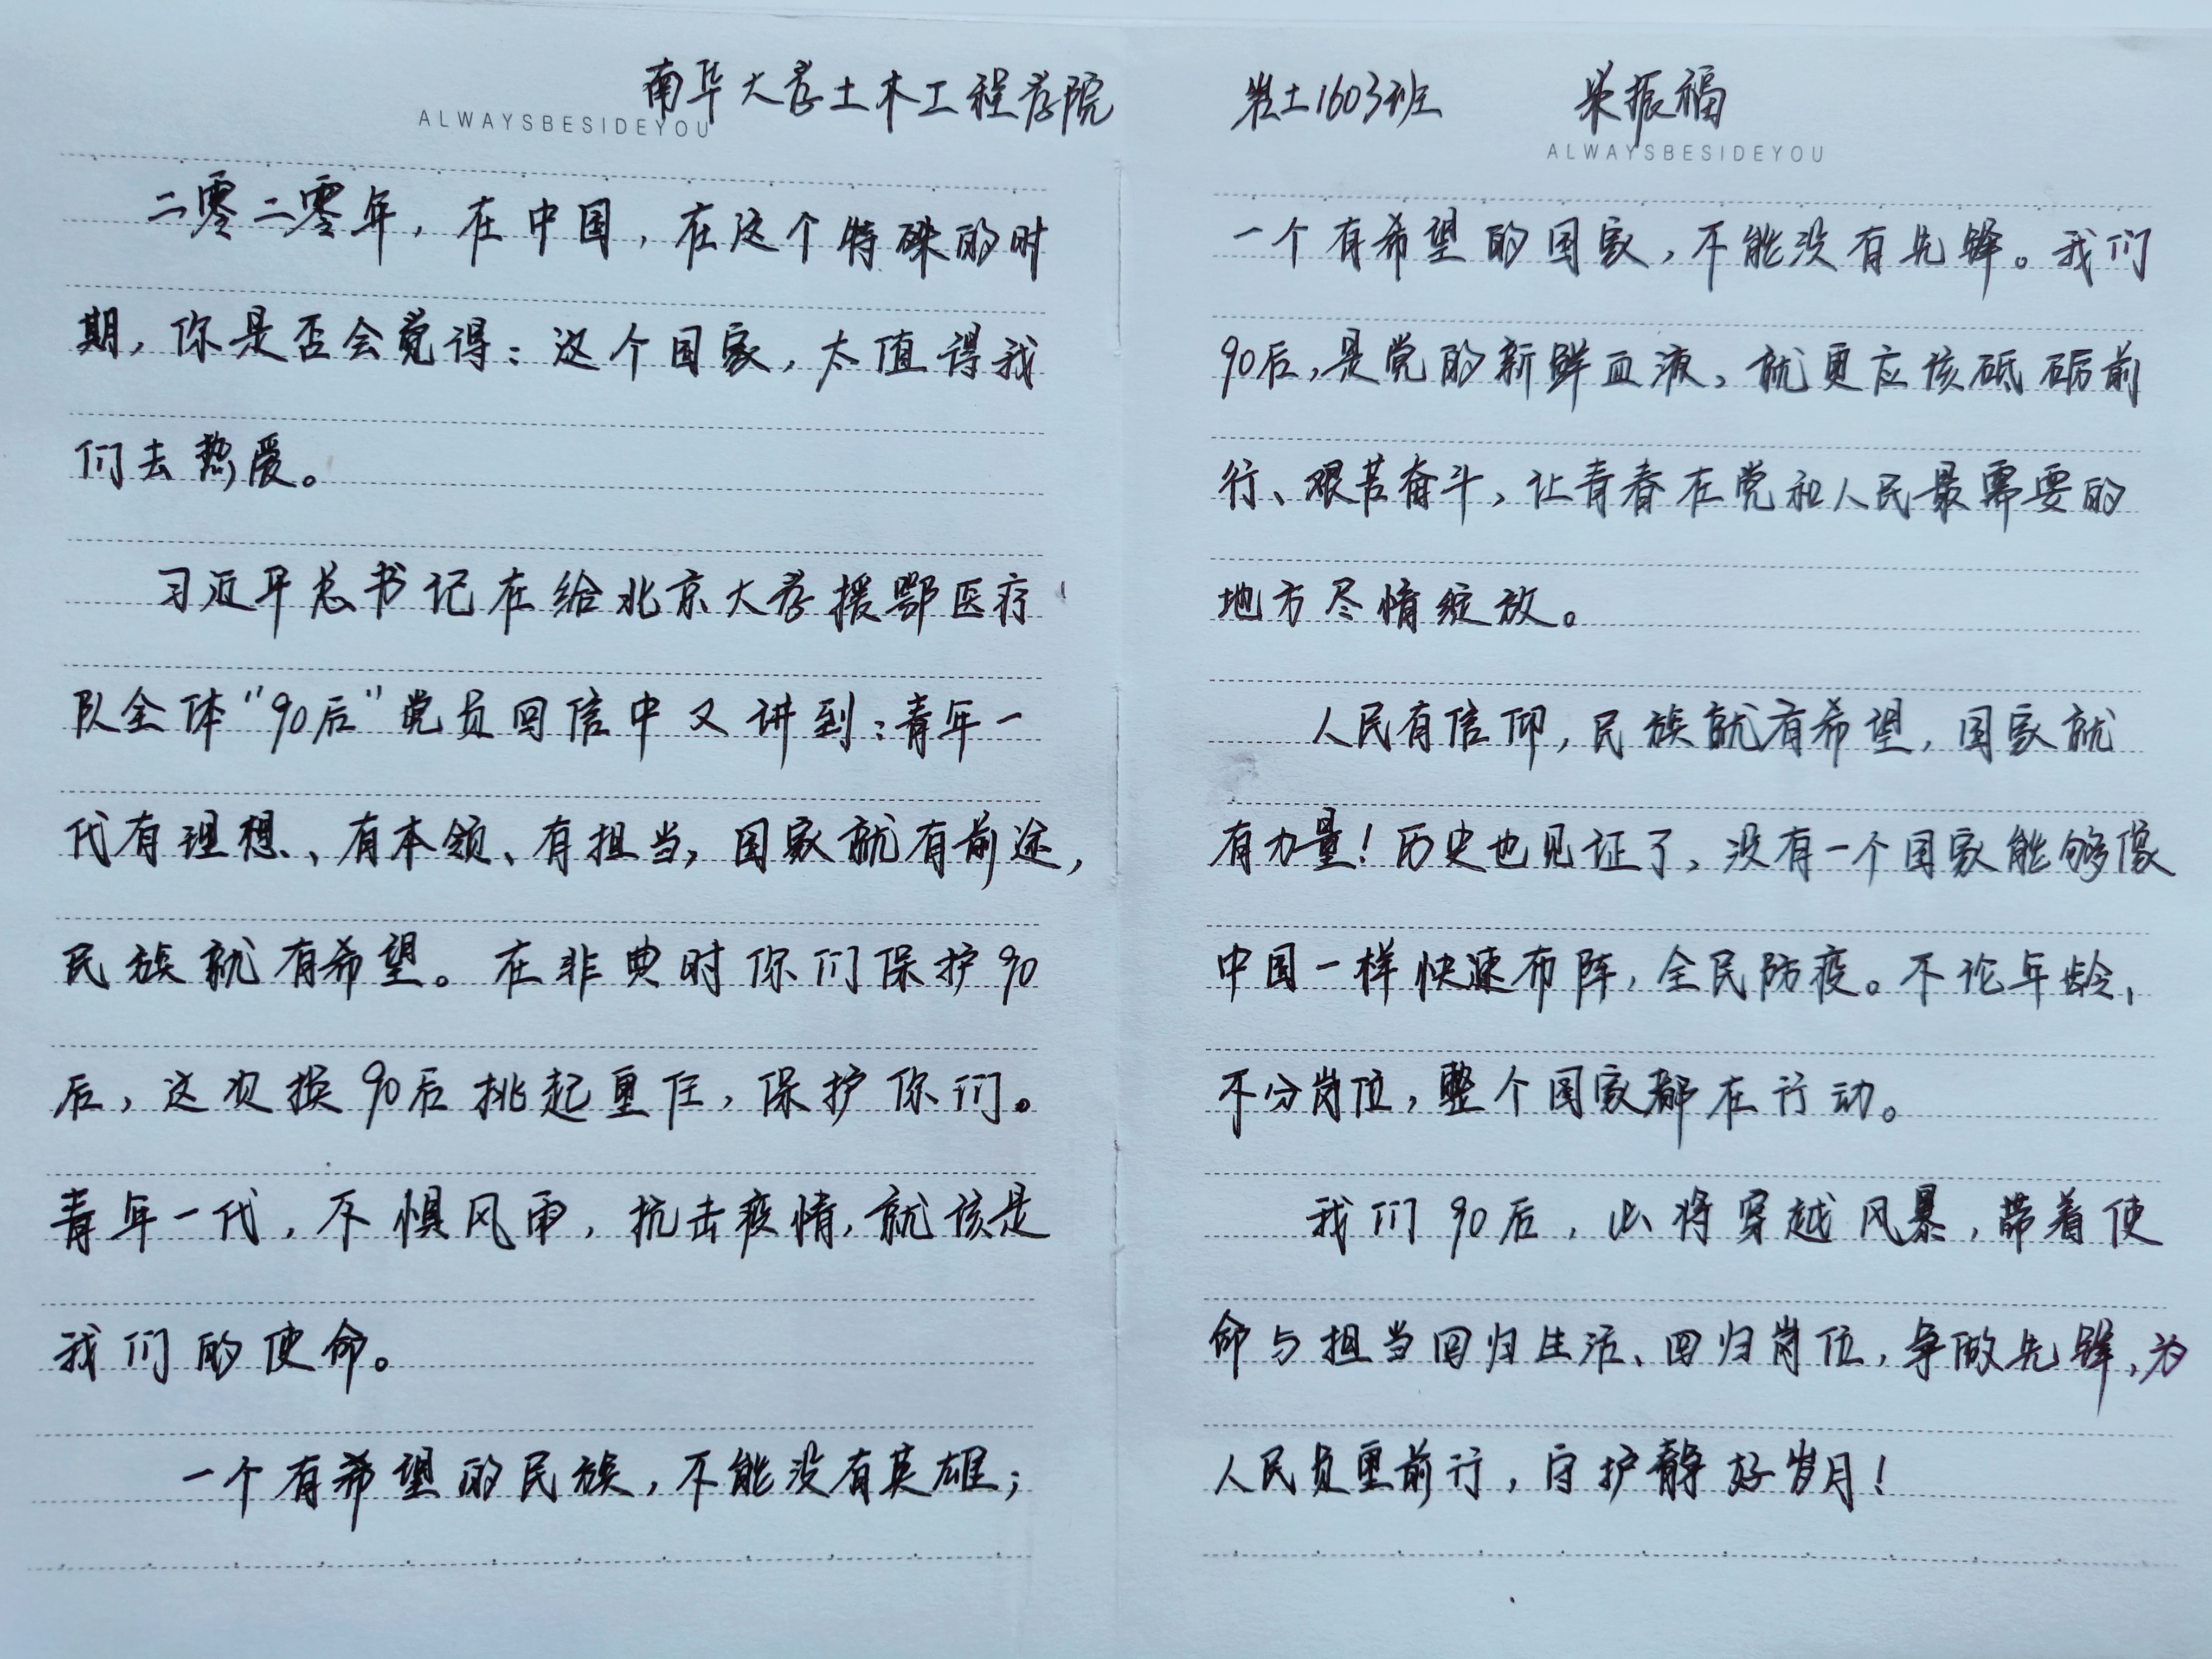 南华大学土木工程学院
ALWAYSBESIDEYOU
二零二零年，在中国，在这个特殊的时
期，你是否会觉得：这个国家，太值得我
们去热爱。
习近平总书记在给北京大学援鄂医疗
队全体“90后”党员回信中又讲到：青年一
代有理想、有本领、有担当，国家就有前途，
民族就有希望。在非典时你们保护90
后，这次换90后挑起重任，保护你们。
青年一代，不惧风雨，抗击疫情，就该是
我们的使命。
一个有希望的民族，不能没有英雄；
岩土1603班 梁振福
ALWAYSBESIDEYOU
一个有希望的国家，不能没有先锋。我们
90后，是党的新鲜血液，就更应该砥砺前
行、艰苦奋斗，让青春在党和人民最需要的
地方尽情绽放。
人民有信仰，民族就有希望，国家就
有力量！历史也见证了，没有一个国家能够像
中国一样快速布阵，全民防疫。不论年龄，
不分岗位，整个国家都在行动。
我们90后，必将穿越风暴，带着使
命与担当回归生活、回归岗位，争做先锋，为
人民负重前行，守护静好岁月！